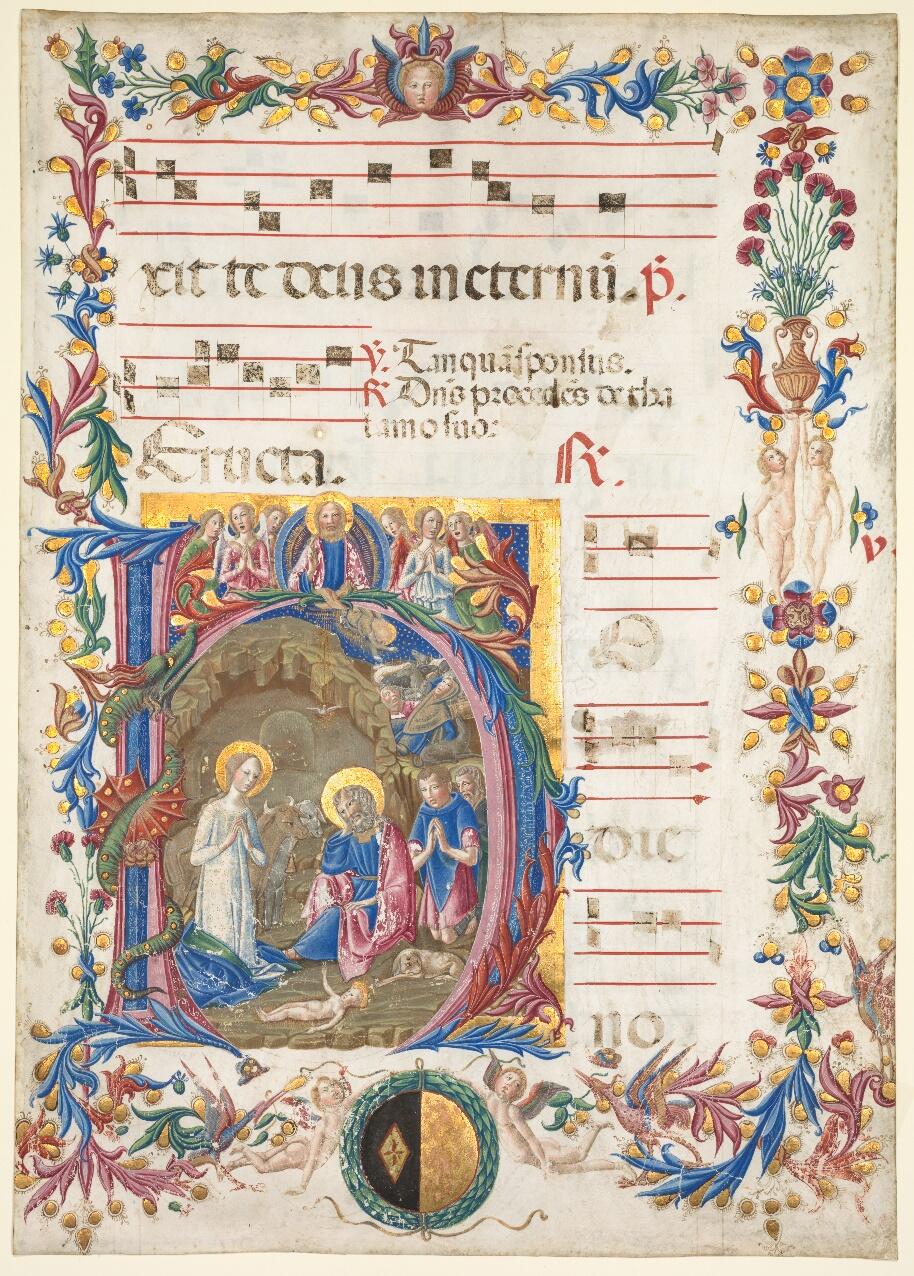 xit te deus in eternū. p̄.
℣. Tanquā sponsus.
℟. Dn̄s procedēs de tha
lamo suo:
Eructa. ℟.
H
O
v.
DIE
NO